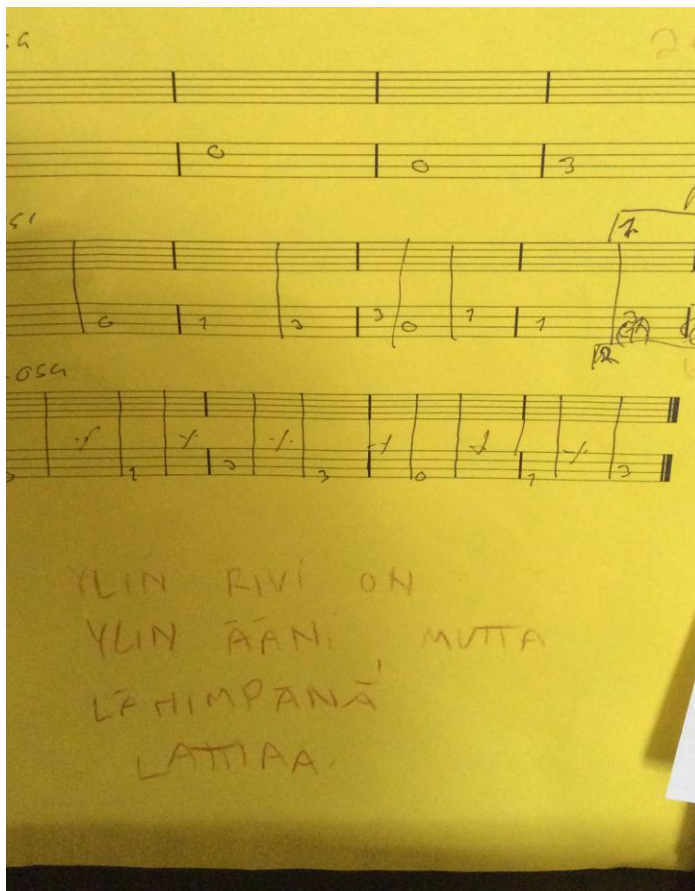 0 0 3
0 1 3 3 0 1 1
OSA
1 3 3 0 1 3
YLIN RIVI ON
YLIN ÄÄNI, MUTTA
LÄHIMPÄNÄ
LATTIAA.